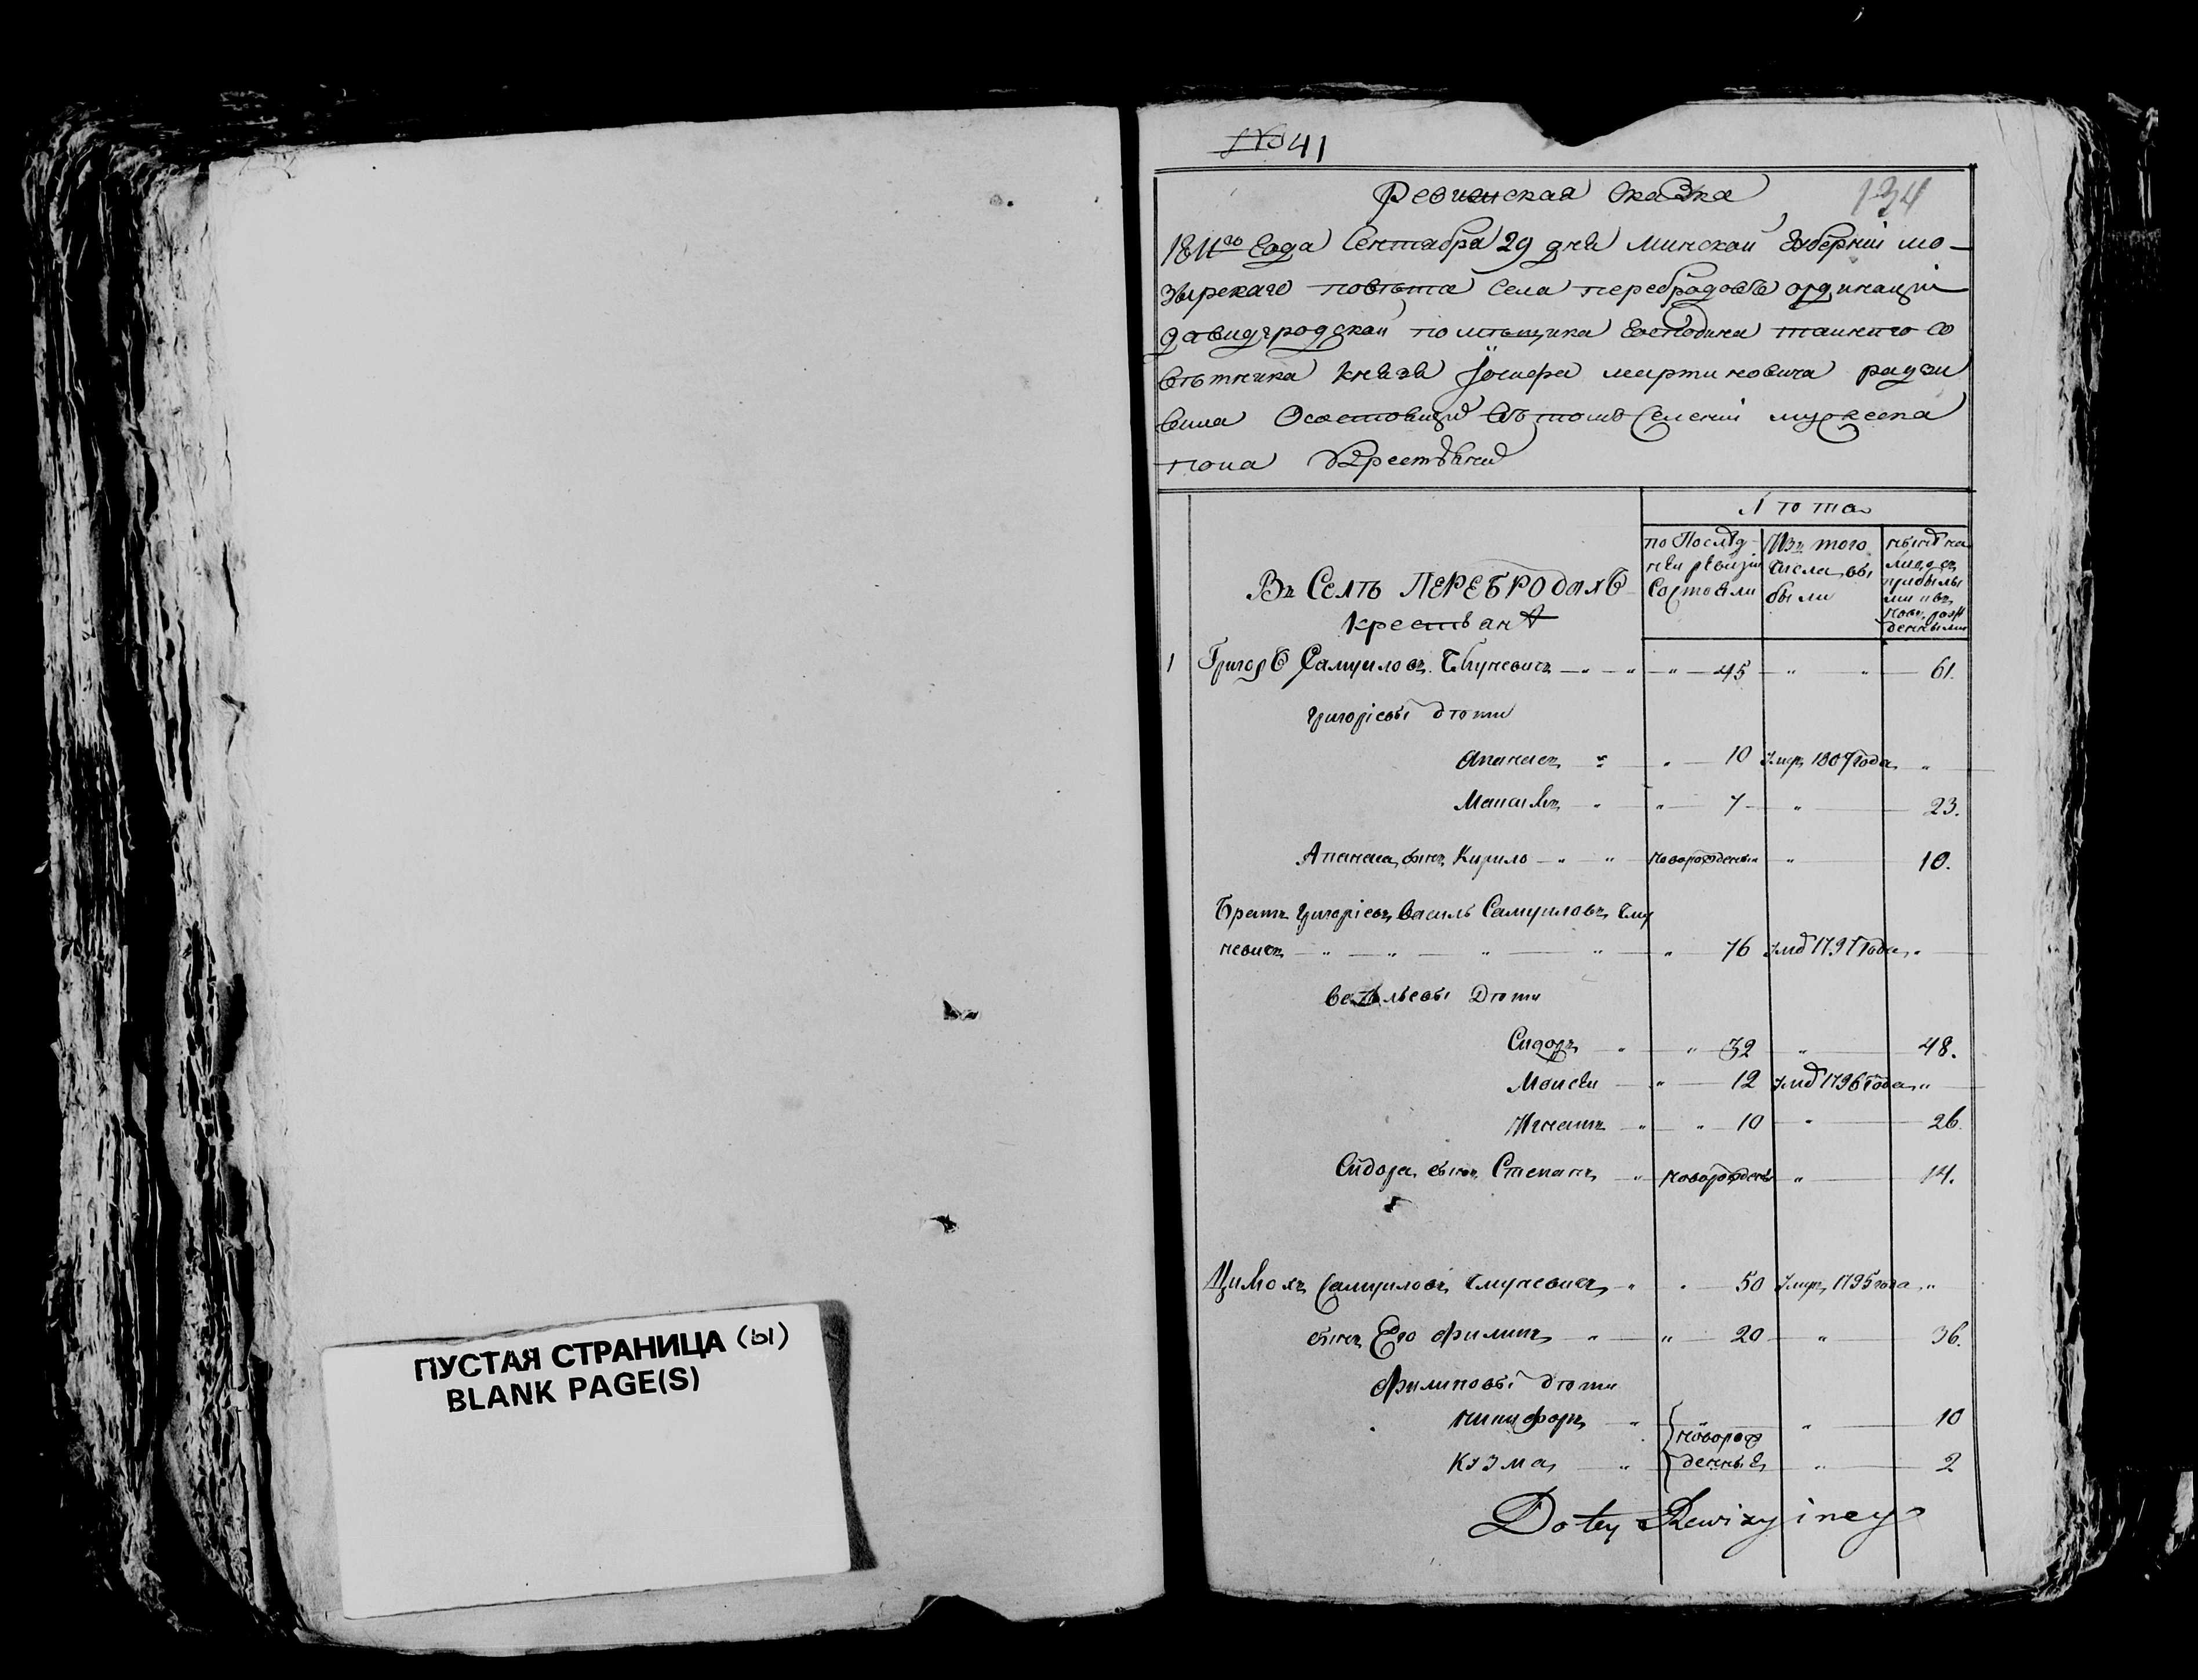 ПУСТАЯ СТРАНИЦА (Ы)
BLANK PAGE(S)
№ 41
134
Ревизская Сказка
1811го Года Сентабра 29 дня Минской Губерніи мо-
зырскаго повѣта Села перебродовъ ординаціи
давидгродской помѣщика Господина таинаго со
вѣтника Князя Іосифа мартиновича радзи
вила Осостоящих въ томъ Селеніи мужеска
пола Крестьянехъ
Лѣта
Въ Селѣ ПЕРЕБРОДАХЪ
крестьянѣ
по Послѣд-
ней ревизіи
Состояли
Изъ того
числа вы
были
нынѣ на
лицо съ
прибылы
ми и въ
новь рож
денными
1 Григорь Самуиловъ - " - " " 45 " " 61.
григоріевы дѣти
Апанасъ " " 10 Умръ 1807 года "
7 " 23.
Апанаса сынъ Кирило " " новорожденый " 10.
Братъ григоріевъ Василь Самуиловъ Чму
невичъ " " " " " 76 Умръ 1797 года "
васильевы Дѣти
Сидоръ " " 32 " 48.
Моисѣй " 12 Умръ 1796 года "
Игнатъ " " 10 " 26.
Сидора сынъ Степанъ " новорожденый " 14.
Цимохъ Самуиловъ Чмуневичъ " " 50 Умръ 1795 года "
сынъ Его филипъ " " 20 " 36.
филиповы дѣти
никифоръ " " 10
новорож
денныя
кузма " " 2
Do tey Rewizyiney